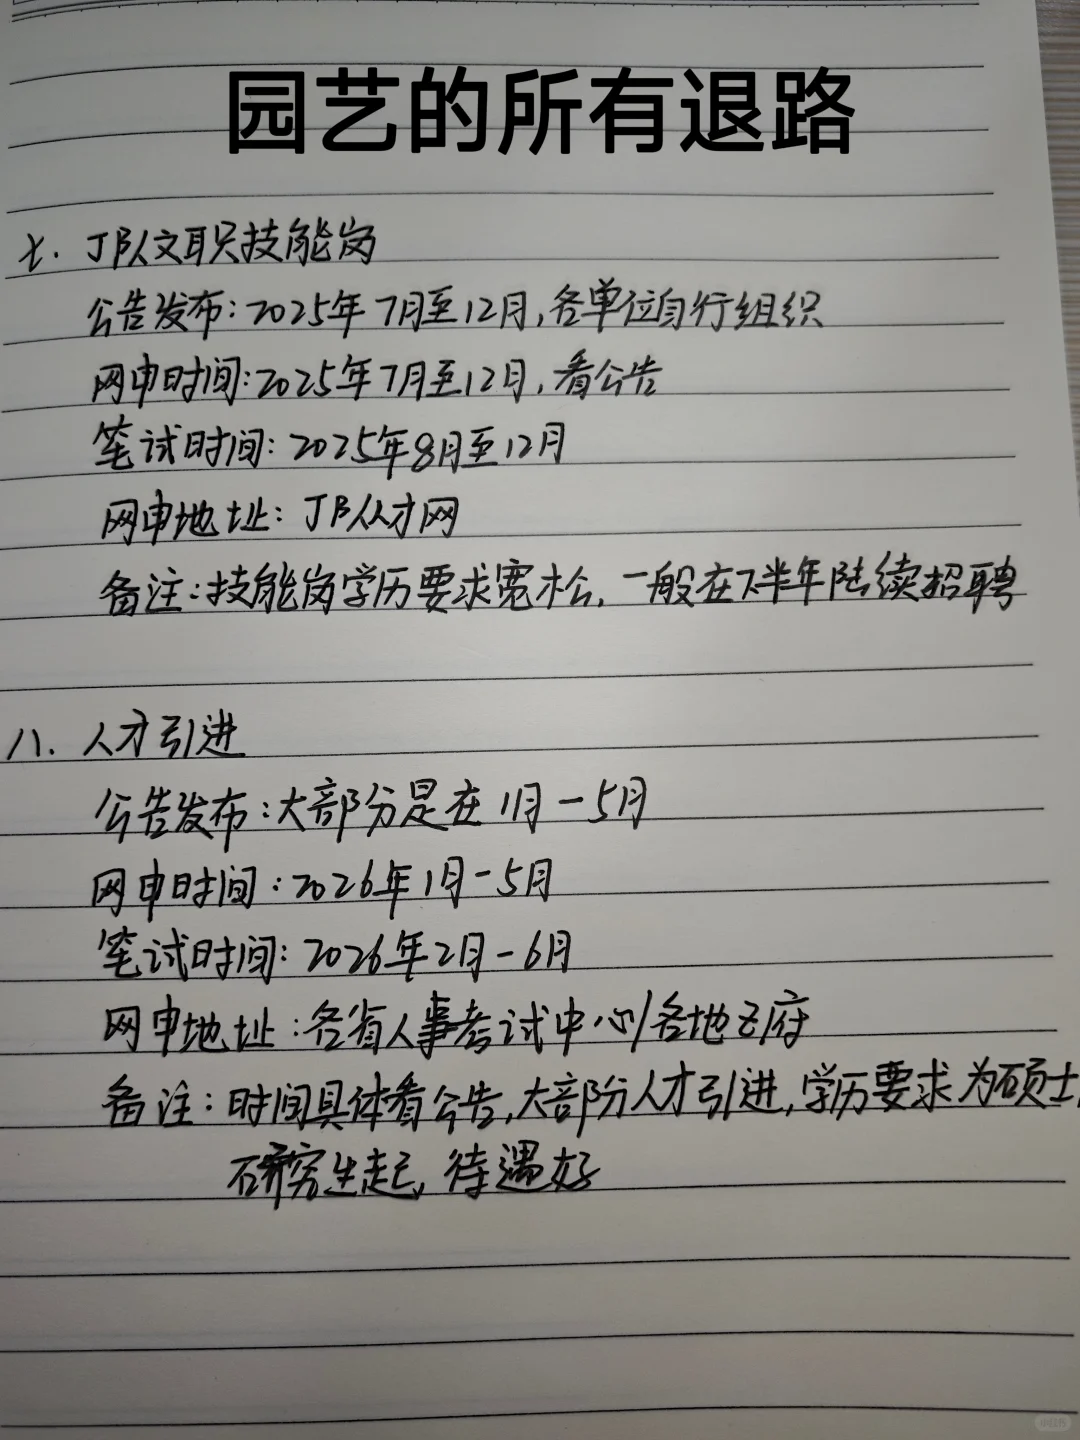 园艺的所有退路
七. JB队文职技能岗
公告发布:2025年7月至12月,各单位自行组织
网申时间:2025年7月至12月,看公告
笔试时间:2025年8月至12月
网申地址:JB人才网
备注:技能岗学历要求宽松,一般在下半年陆续招聘
八. 人才引进
公告发布:大部分是在1月-5月
网申时间:2026年1月-5月
笔试时间:2026年2月-6月
网申地址:各省人事考试中心/各地z府
备注:时间具体看公告,大部分人才引进,学历要求为硕士
研究生起,待遇好
小红书